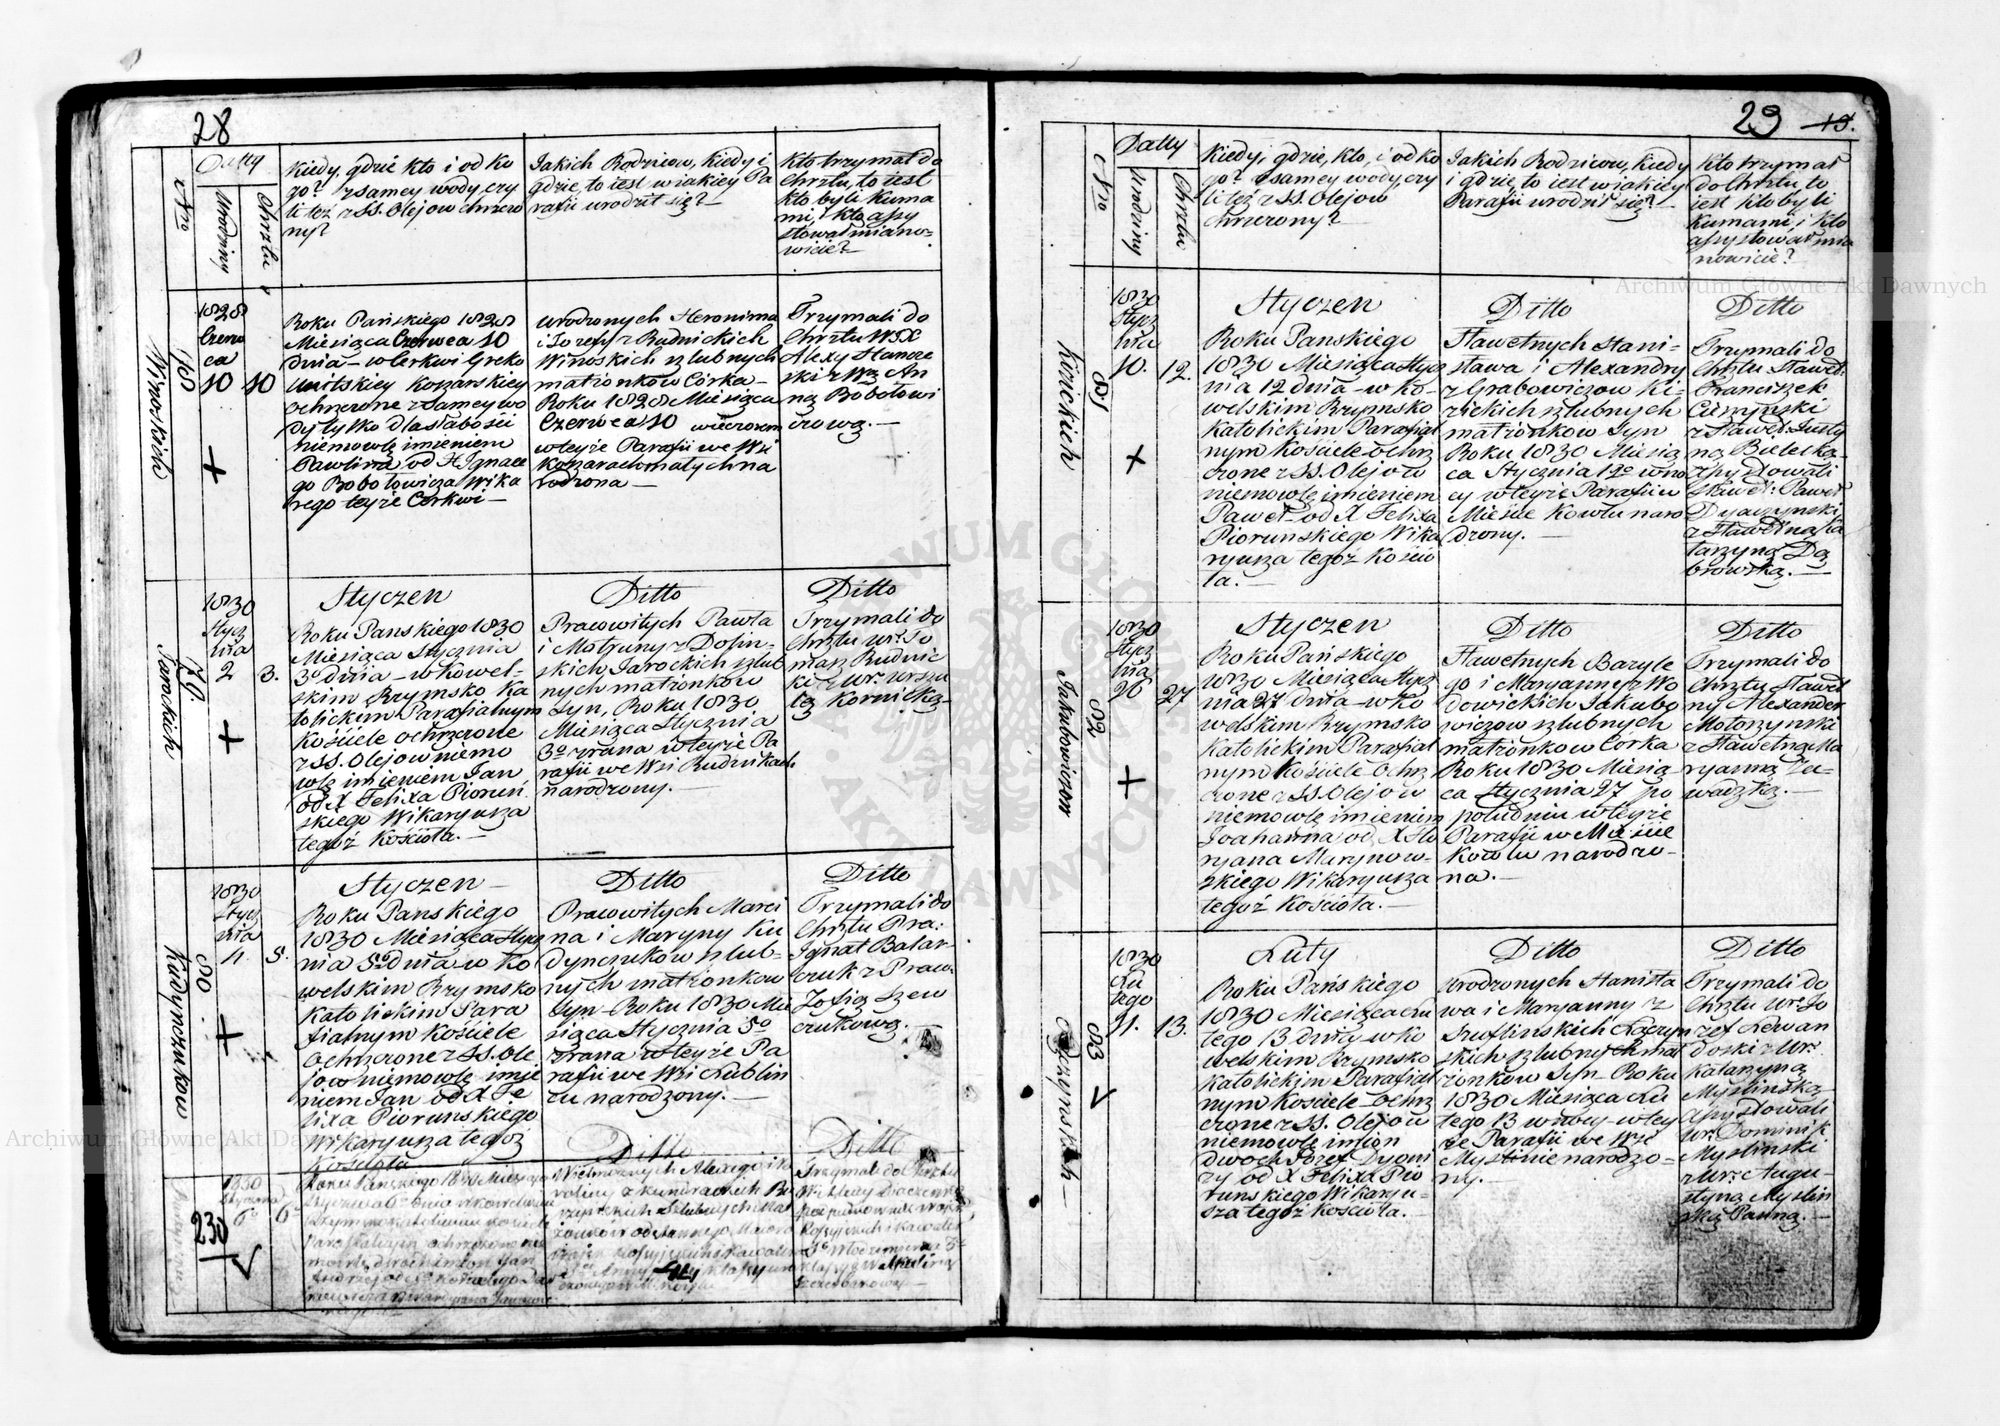 28
Nro
Datty
Urodziny
Chrztu
Kiedy, gdzie kto i od ko
go? z samey wody, czy
li też z SS. Olejow chrzczo
ny?
Jakich Rodzicow, kiedy i
gdzie, to iest w iakiey Pa
rafii urodził się?
Kto trzymał do
Chrztu, to iest
kto byli kuma
mi, i kto assy
stował miano=
wicie?
78
Winoskich
1828
Czerw
ca
10
10
Roku Pańskiego 1828
Miesiąca Czerwca 10
dnia – w Cerkwi Greko
Unitskiey Koszarskiey
ochrzczone z samey wo
dy tylko dla słabości
niemowlę imieniem
Pawlina od X Ignace
go Bobołowicza Wika
rego teyże Cerkwi —
urodzonych Heronima
i Jozefy z Rudnickich
Winoskich szlubnych
małżonkow Córka —
Roku 1828 Miesiąca
Czerwca 10 wieczorem
w teyże Parafii we Wsi
Koszarach małych na
rodzona —
Trzymali do
Chrztu WJX
Alexy
ski z Wą An
ną Bobołowi
czową. —
79.
Jarockich
1830
Stycz
nia
2
3.
Styczen
Roku Panskiego 1830
Miesiąca Stycznia
3o dnia – w Kowel-
skim Rzymsko Ka
tolickim Parafialnym
Kościele ochrzczone
z SS. Olejow niemo
wlę imieniem Jan
od X Felixa Pioruń
skiego Wikaryusza
tegoż Kościoła. —
Ditto
Pracowitych Pawła
i Motruny z Dolin-
skich Jarockich szlub
nych małżonkow
Syn, Roku 1830
Miesiąca Stycznia
3o zrana w teyże Pa
rafii we Wsi Rudnikach
narodzony. —
Ditto
Trzymali do
Chrztu Ur. To
masz Rudnic
ki z Ur. Urszu
lą Kornicką.
80
Kudynczukow
1830
Stycz
nia
4.
5.
Styczen —
Roku Panskiego
1830 Miesiąca Stycz
nia 5o dnia w Ko
welskim Rzymsko
Katolickim Para
fialnym Kościele
Ochrzczone z SS. Ole
jow niemowlę imie
niem Jan od X Fe
lixa Piorunskiego
Wikaryusza tegoz
Kościoła
Ditto
Pracowitych Marci
na i Maryny Ku
dynczukow szlub-
nych małżonkow
Syn – Roku 1830 Mie
siąca Stycznia 5o
zrana w teyże Pa
rafii we Wsi Lublin
cu narodzony. —
Ditto
Trzymali do
Chrztu Pra:
Ignat Bałan-
czuk z Praw.
Zofią Szew
czukową. —
1830
Stycznia
6o
6o
230
Roku Pańskiego 1830 Miesiąca
Stycznia 6o dnia w Kowelskim
Rzymsko Katolickim Kościele
Parafialnym ochrzczone nie
mowle dwoch imion Jan
Ditto
Wielmożnych Alexego i Ka
roliny z
Ditto
Trzymali do Chrztu
29
13.
Nro
Datty
Urodziny
Chrztu
Kiedy, gdzie, kto, i od ko
go? z samey wody, czy
li też z SS. Olejow
chrzczony?
Jakich Rodzicow, kiedy
i gdzie, to iest w iakiey
Parafii urodził się?
Kto trzymał
do Chrztu, to
iest kto byli
kumami, i kto
assystował mia
nowicie?
81
Kizickich
1830
Stycz
nia
10.
12.
Styczen
Roku Panskiego
1830 Miesiąca Stycz
nia 12 dnia – w Ko-
welskim Rzymsko
Katolickim Parafial
nym Kościele ochrz
czone z SS. Olejow
niemowlę imieniem
Paweł – od X Felixa
Piorunskiego Wika
ryusza tegoż Kościo
ła. —
Ditto
Sławetnych Stani-
sława i Alexandry
z Grabowiczow Ki-
zickich szlubnych
małżonkow Syn
Roku 1830 Miesią
ca Stycznia 12o w no
cy w teyże Parafii w
Mieście Kowlu naro
dzony. —
Ditto
Trzymali do
Chrztu Sławet:
Franciszek
z Sławet: Justy
ną Bielecką
Assystowali
Sławet: Paweł
z Sławetną Ka
tarzyną Dą
browską. —
82
Jakubowiczow
1830
Stycz
nia
26
27
Styczen
Roku Pańskiego
1830 Miesiąca Stycz
nia 27 dnia – w Ko
welskim Rzymsko
Katolickim Parafial
nym Kościele Ochrz
czone z SS. Olejow
niemowlę imieniem
Joahanna od X Flo
ryana Marynow-
skiego Wikaryusza
tegoż Kościoła. —
Ditto
Sławetnych Bazyle
go i Maryanny z Wo
dowickich Jakubo
wiczow szlubnych
małżonkow Córka
Roku 1830 Miesią
ca Stycznia 27 po
południu w teyże
Parafii w Mieście
Kowlu narodzo-
na. —
Ditto
Trzymali do
Chrztu Sławet
ny Alexander
Motoszynski
z Sławetną Ma
ryanną Za-
wadzką. —
83
1830
Lu
tego
11.
13.
Luty
Roku Pańskiego
1830 Miesiąca Lu
tego 13 dnia w Ko
welskim Rzymsko
Katolickim Parafial
nym Kościele – Ochrz
czone z SS. Olejow
niemowlę imion
dwoch Jozef Dyoni
zy od X Felixa Pio
runskiego Wikaryu-
sza tegoż Kościoła. —
Ditto
Urodzonych Stanisła
wa i Maryanny z
skich szlubnych mał
żonkow Syn – Roku
1830 Miesiąca Lu
tego 13 w nocy – w tey
że Parafii we Wsi
Myślinie narodzo-
ny. —
Ditto
Trzymali do
Chrztu Ur: Jo
zef Lewan
doski z Ur:
Katarzyną
Myślińską
Assystowali
Ur: Dominik
Myslinski
z Ur: Augu-
styną Myslin
ską Panną. —
Archiwum Główne Akt Dawnych
Archiwum Główne Akt Dawnych
ARCHIWUM GŁÓWNE AKT DAWNYCH